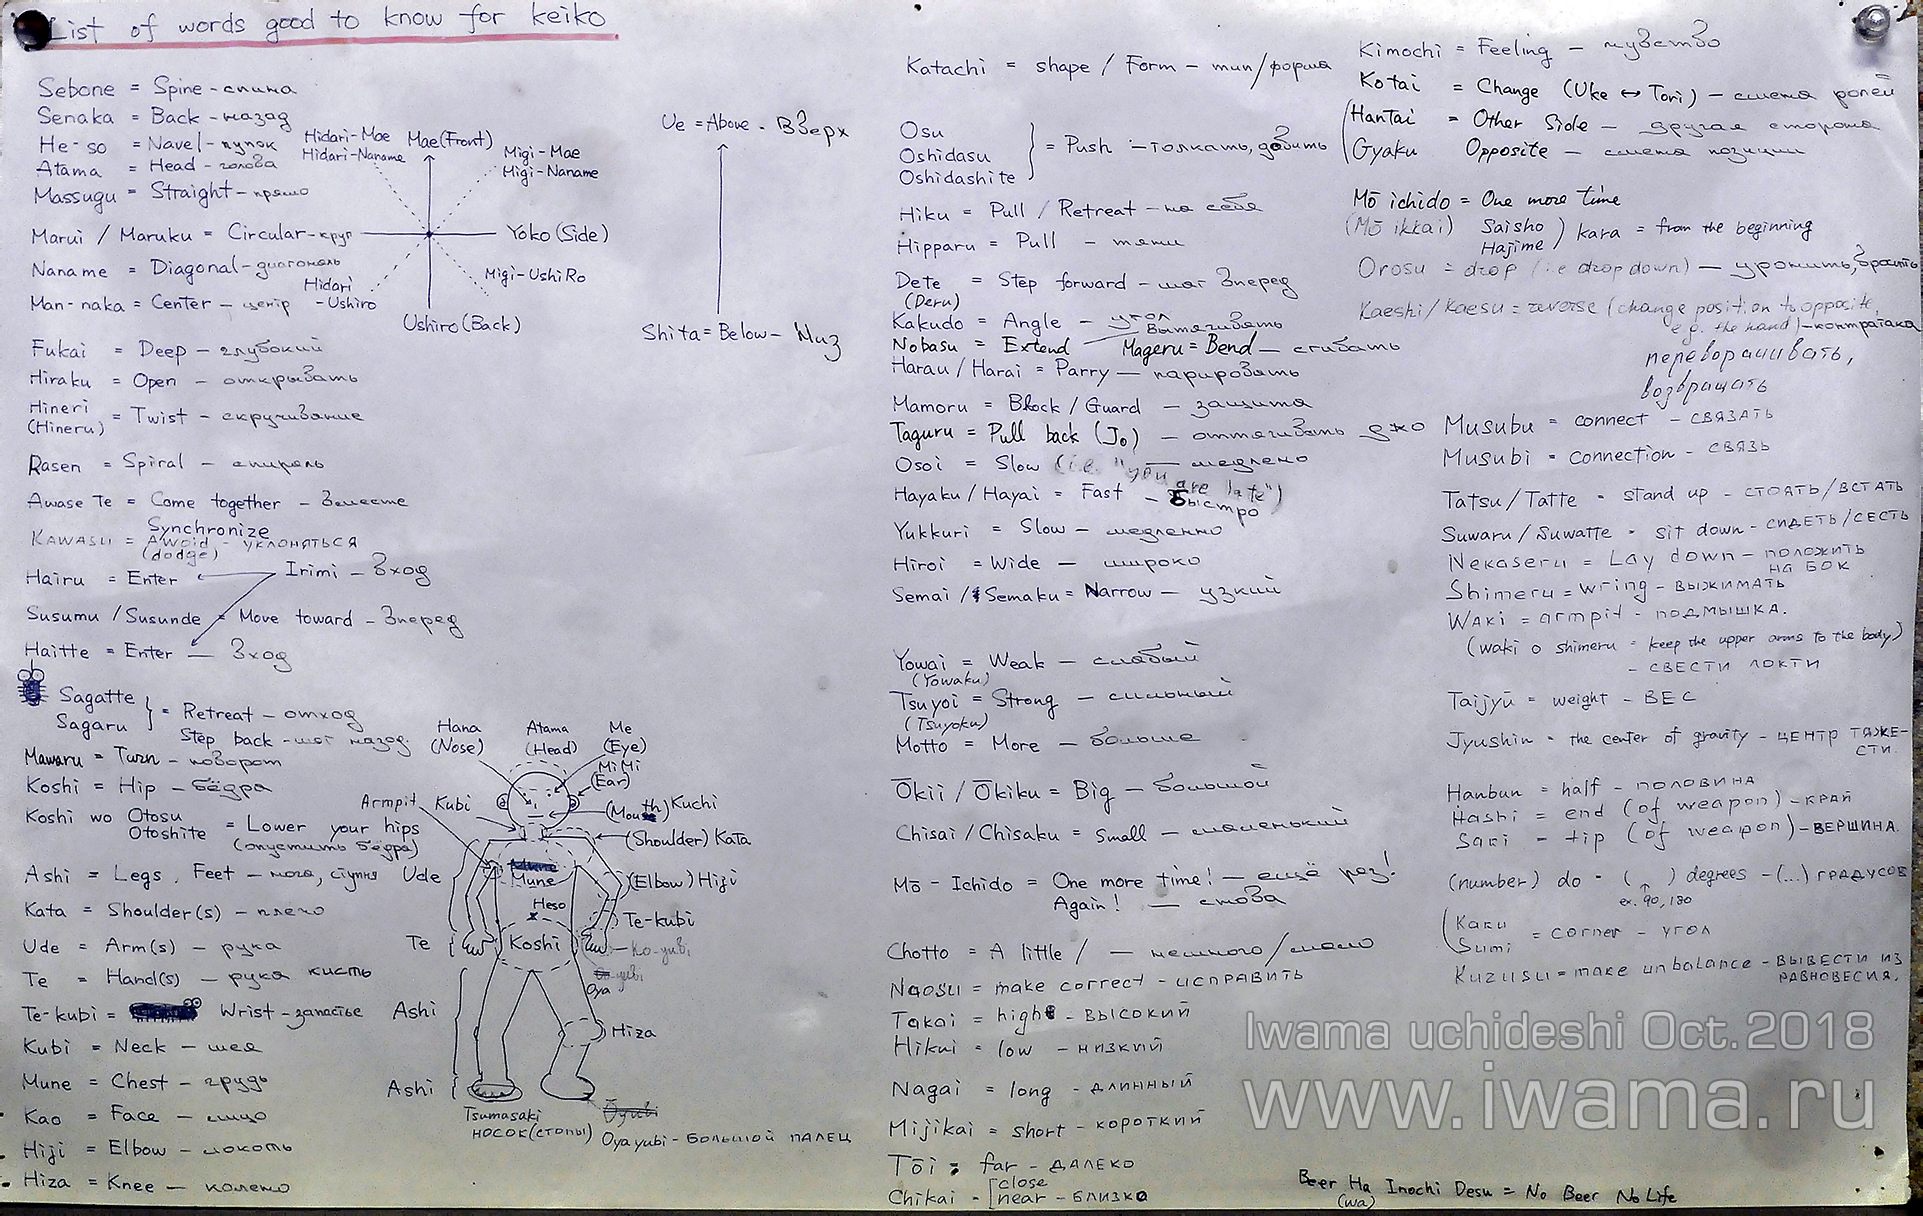 List of words good to know for keiko
Sebone = Spine - спина
Senaka = Back - назад
He-so = Navel - пупок
Atama = Head - голова
Massugu = Straight - прямо
Marui / Maruku = Circular - круг
Naname = Diagonal - диагональ
Man-naka = Center - центр
Fukai = Deep - глубокий
Hiraku = Open - открывать
Hineri
(Hineru) = Twist - скручивание
Rasen = Spiral - спираль
Awase Te = Come together - вместе
Synchronize
Kawasu = Awoid - уклоняться
(dodge)
Hairu = Enter
Irimi - Вход
Susumu / Susunde = Move toward - Вперед
Haitte = Enter - Вход
Sagatte
Sagaru } = Retreat - отход
Step back - шаг назад
Mawaru = Turn - поворот
Koshi = Hip - бёдра
Koshi wo Otosu
Otoshite = Lower your hips
(опустить бёдра)
Ashi = Legs, Feet - нога, ступня
Kata = Shoulder(s) - плечо
Ude = Arm(s) - рука
Te = Hand(s) - рука кисть
Te-kubi = Wrist - запастье
Kubi = Neck - шея
Mune = Chest - грудь
Kao = Face - лицо
Hiji = Elbow - локоть
Hiza = Knee - колено
Hidari-Mae
Hidari-Naname
Mae (Front)
Migi-Mae
Migi-Naname
Yoko (Side)
Migi-UshiRo
Hidari
-Ushiro
Ushiro (Back)
Ue = Above - Вверх
Shita = Below - Низ
Hana
(Nose)
Atama
(Head)
Me
(Eye)
MiMi
(Ear)
Armpit
Kubi
(Mouth) Kuchi
(Shoulder) Kata
Mune
Ude
(Elbow) Hiji
Heso
Te-kubi
Te
Koshi
Ko-yubi
yubi
Oya
Ashi
Hiza
Ashi
Tsumasaki
НОСОК (СТОПЫ)
Oyubi
Oya yubi - БОЛЬШОЙ ПАЛЕЦ
Katachi = shape / Form - тип/форма
Osu
Oshidasu
Oshidashite } = Push - толкать, давить
Hiku = Pull / Retreat - на себя
Hipparu = Pull - тяни
Dete = Step forward - шаг вперед
(Deru)
Kakudo = Angle - угол
Nobasu = Extend - вытягивать
Mageru = Bend - сгибать
Harau / Harai = Parry - парировать
Mamoru = Block / Guard - защита
Taguru = Pull back (Jo) - оттягивать джо
Osoi = Slow (i.e. "you are late") - медлено
Hayaku / Hayai = Fast - Быстро
Yukkuri = Slow - медленно
Hiroi = Wide - широко
Semai / Semaku = Narrow - узкий
Yowai = Weak - слабый
(Yowaku)
Tsuyoi = Strong - сильный
(Tsuyoku)
Motto = More - больше
Ōkii / Ōkiku = Big - большой
Chisai / Chisaku = Small - маленький
Mō-Ichido = One more time! - ещё раз!
Again! - снова
Chotto = A little / - немного/мало
Naosu = make correct - ИСПРАВИТЬ
Takai = high - ВЫСОКИЙ
Hikui = low - НИЗКИЙ
Nagai = long - ДЛИННЫЙ
Mijikai = short - КОРОТКИЙ
Tōi = far - ДАЛЕКО
Chikai - [close
near - БЛИЗКО
Kimochi = Feeling - чувство
Kotai = Change (Uke ↔ Tori) - смена ролей
(Hantai = Other Side - другая сторона
Gyaku Opposite - смена позиции
Mō ichido = One more time
(Mō ikkai) Saisho
Hajime ) kara = from the beginning
Orosu = drop (i.e drop down) - уронить, бросить
Kaeshi / Kaesu = reverse (change position to opposite,
e.g. the hand) - контратака
переворачивать,
возвращать
Musubu = connect - СВЯЗАТЬ
Musubi = connection - СВЯЗЬ
Tatsu / Tatte = stand up - СТОЯТЬ / ВСТАТЬ
Suwaru / Suwatte = sit down - СИДЕТЬ / СЕСТЬ
Nekaseru = Lay down - ПОЛОЖИТЬ
НА БОК
Shimeru = wring - ВЫЖИМАТЬ
Waki = armpit - ПОДМЫШКА.
(waki o shimeru = keep the upper arms to the body)
- СВЕСТИ ЛОКТИ
Taijyū = weight - ВЕС
Jyushin = the center of gravity - ЦЕНТР ТЯЖЕ-
СТИ.
Hanbun = half - ПОЛОВИНА
Hashi = end (of weapon) - КРАЙ
Saki = tip (of weapon) - ВЕРШИНА.
(number) do = ( ) degrees - (...) ГРАДУСОВ
ex. 90, 180
(Kaku
Sumi = corner - УГОЛ
Kuzusu = make unbalance - ВЫВЕСТИ ИЗ
РАВНОВЕСИЯ.
Iwama uchideshi Oct. 2018
www.iwama.ru
Beer Ha Inochi Desu = No Beer No Life
(wa)